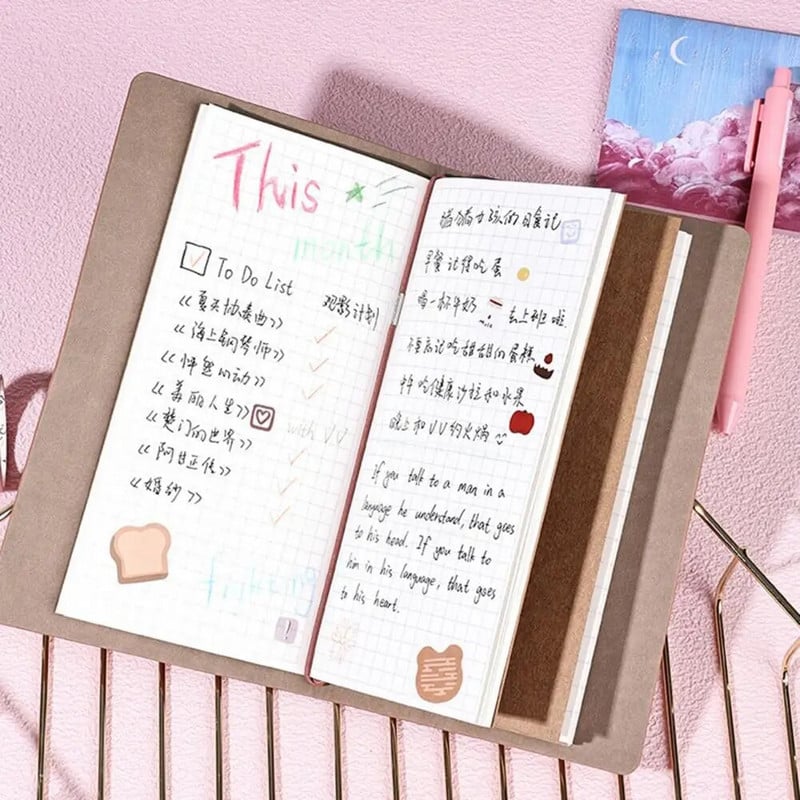 This
month
To Do List
观影计划
《夏天协奏曲》
《海上钢琴师》
《怦然心动》
《美丽人生》
with VV
《楚门的世界》
《阿甘正传》
《婚纱》
!
女孩的日食记
早餐记得吃蛋
喝一杯牛奶 去上班啦
不要忘记吃甜甜的蛋糕
吃健康沙拉和水果
晚上和VV约火锅
if you talk to a man in a
language he understand, that goes
to his head. If you talk to
him in his language, that goes
to his heart.